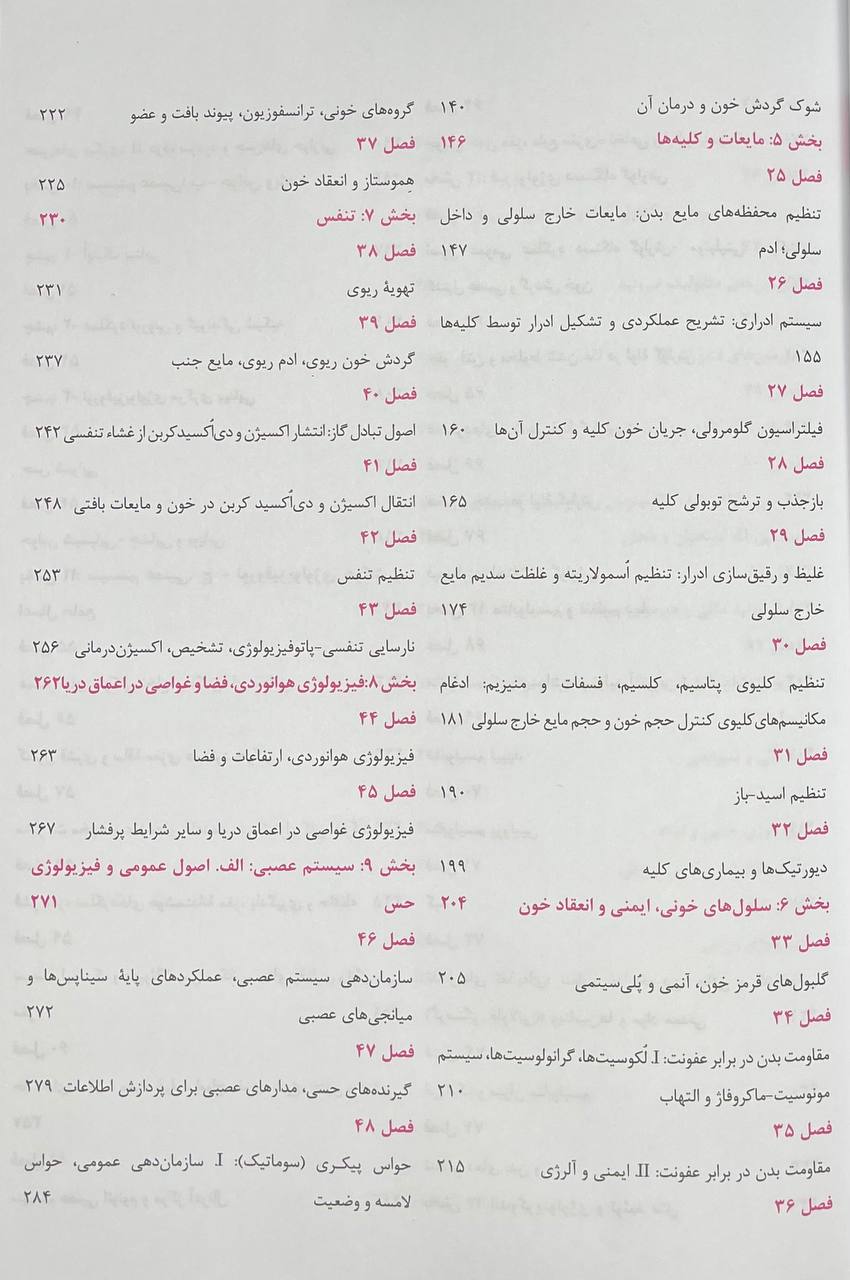 شوک گردش خون و درمان آن ۱۴۰
بخش ۵: مایعات و کلیه‌ها ۱۴۶
فصل ۲۵
تنظیم محفظه‌های مایع بدن: مایعات خارج سلولی و داخل
سلولی؛ ادم ۱۴۷
فصل ۲۶
سیستم ادراری: تشریح عملکردی و تشکیل ادرار توسط کلیه‌ها
۱۵۵
فصل ۲۷
فیلتراسیون گلومرولی، جریان خون کلیه و کنترل آن‌ها ۱۶۰
فصل ۲۸
بازجذب و ترشح توبولی کلیه ۱۶۵
فصل ۲۹
غلیظ و رقیق‌سازی ادرار: تنظیم اُسمولاریته و غلظت سدیم مایع
خارج سلولی ۱۷۴
فصل ۳۰
تنظیم کلیوی پتاسیم، کلسیم، فسفات و منیزیم: ادغام
مکانیسم‌های کلیوی کنترل حجم خون و حجم مایع خارج سلولی ۱۸۱
فصل ۳۱
تنظیم اسید-باز ۱۹۰
فصل ۳۲
دیورتیک‌ها و بیماری‌های کلیه ۱۹۹
بخش ۶: سلول‌های خونی، ایمنی و انعقاد خون ۲۰۴
فصل ۳۳
گلبول‌های قرمز خون، آنمی و پُلی‌سیتمی ۲۰۵
فصل ۳۴
مقاومت بدن در برابر عفونت: I. لُکوسیت‌ها، گرانولوسیت‌ها، سیستم
مونوسیت-ماکروفاژ و التهاب ۲۱۰
فصل ۳۵
مقاومت بدن در برابر عفونت: II. ایمنی و آلرژی ۲۱۵
فصل ۳۶
گروه‌های خونی، ترانسفوزیون، پیوند بافت و عضو ۲۲۲
فصل ۳۷
هِموستاز و انعقاد خون ۲۲۵
بخش ۷: تنفس ۲۳۰
فصل ۳۸
تهویهٔ ریوی ۲۳۱
فصل ۳۹
گردش خون ریوی، ادم ریوی، مایع جنب ۲۳۷
فصل ۴۰
اصول تبادل گاز: انتشار اکسیژن و دی‌اُکسیدکربن از غشاء تنفسی ۲۴۲
فصل ۴۱
انتقال اکسیژن و دی‌اُکسید کربن در خون و مایعات بافتی ۲۴۸
فصل ۴۲
تنظیم تنفس ۲۵۳
فصل ۴۳
نارسایی تنفسی-پاتوفیزیولوژی، تشخیص، اکسیژن‌درمانی ۲۵۶
بخش ۸: فیزیولوژی هوانوردی، فضا و غواصی در اعماق دریا ۲۶۲
فصل ۴۴
فیزیولوژی هوانوردی، ارتفاعات و فضا ۲۶۳
فصل ۴۵
فیزیولوژی غواصی در اعماق دریا و سایر شرایط پرفشار ۲۶۷
بخش ۹: سیستم عصبی: الف. اصول عمومی و فیزیولوژی
حس ۲۷۱
فصل ۴۶
سازمان‌دهی سیستم عصبی، عملکردهای پایهٔ سیناپس‌ها و
میانجی‌های عصبی ۲۷۲
فصل ۴۷
گیرنده‌های حسی، مدارهای عصبی برای پردازش اطلاعات ۲۷۹
فصل ۴۸
حواس پیکری (سوماتیک): I. سازمان‌دهی عمومی، حواس
لامسه و وضعیت ۲۸۴